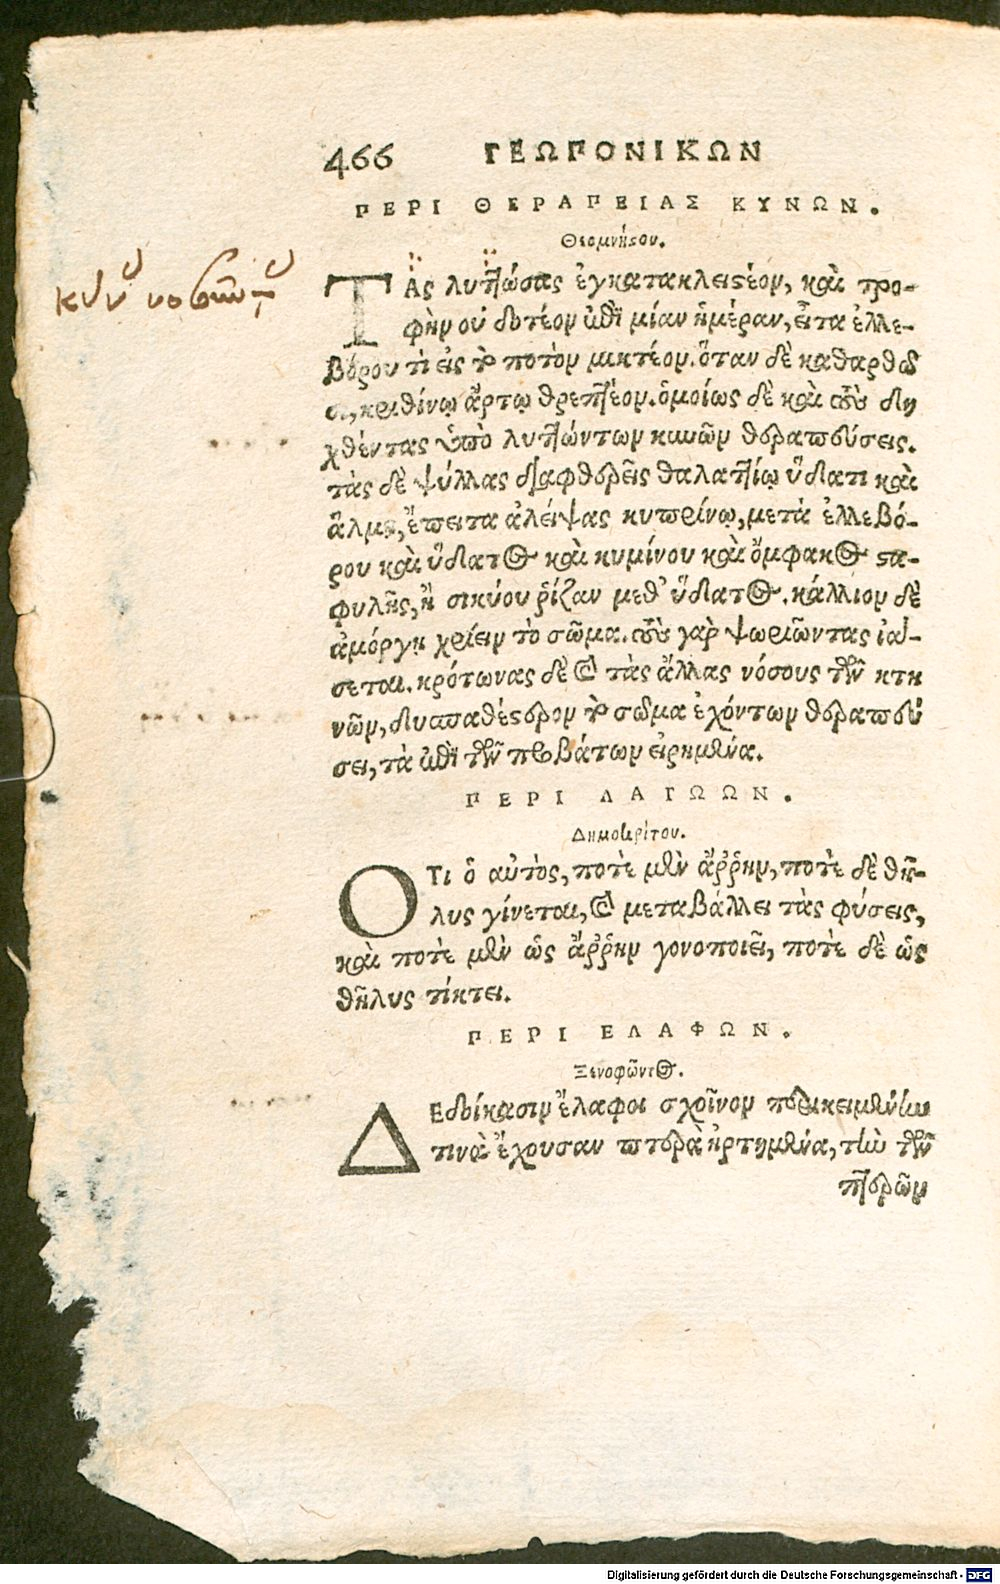 466 ΓΕΩΠΟΝΙΚΩΝ
ΠΕΡΙ ΘΕΡΑΠΕΙΑΣ ΚΥΝΩΝ.
Θεομνήστου.
ΤΑς λυττώσας ἐγκατακλειστέον, καὶ τρο-
φὴν οὐ δοτέον ἐπὶ μίαν ἡμέραν, εἶτα ἐλλε-
βόρου τὶ εἰς τὸ ποτὸν μικτέον. ὅταν δὲ καθαρθῶ
σι, κριθίνῳ ἄρτῳ θρεπτέον. ὁμοίως δὲ καὶ τοὺς δη
χθέντας ὑπὸ λυττώντων κυνῶν θεραπεύσεις.
τὰς δὲ ψύλλας διαφθερεῖς θαλαττίῳ ὕδατι καὶ
ἅλμῃ, ἔπειτα ἀλείψας κυπρίνῳ, μετὰ ἐλλεβό-
ρου καὶ ὕδατος καὶ κυμίνου καὶ ὄμφακος στα-
φυλῆς, ἢ σικύου ῥίζαν μεθ' ὕδατος. κάλλιον δὲ
ἀμόργῃ χρίειν τὸ σῶμα. τοὺς γὰρ ψωριῶντας ἰά-
σεται. κρότωνας δὲ καὶ τὰς ἄλλας νόσους τῶν κτη
νῶν, δυσπαθέστερον τὸ σῶμα ἐχόντων θεραπεύ
σει, τὰ ἐπὶ τῶν προβάτων εἰρημένα.
ΠΕΡΙ ΛΑΓΩΩΝ.
Δημοκρίτου.
ΟΤι ὁ αὐτὸς, ποτὲ μὲν ἄῤῥην, ποτὲ δὲ θῆ-
λυς γίνεται, καὶ μεταβάλλει τὰς φύσεις,
καὶ ποτὲ μὲν ὡς ἄῤῥην γονοποιεῖ, ποτὲ δὲ ὡς
θῆλυς τίκτει.
ΠΕΡΙ ΕΛΑΦΩΝ.
Ξενοφῶντος.
ΔΕδοίκασιν ἔλαφοι σχοῖνον περικειμένην
τινὰ ἔχουσαν πτερὰ ἠρτημένα, τὴν τῶν
πτερῶν
Digitalisierung gefördert durch die Deutsche Forschungsgemeinschaft - DFG